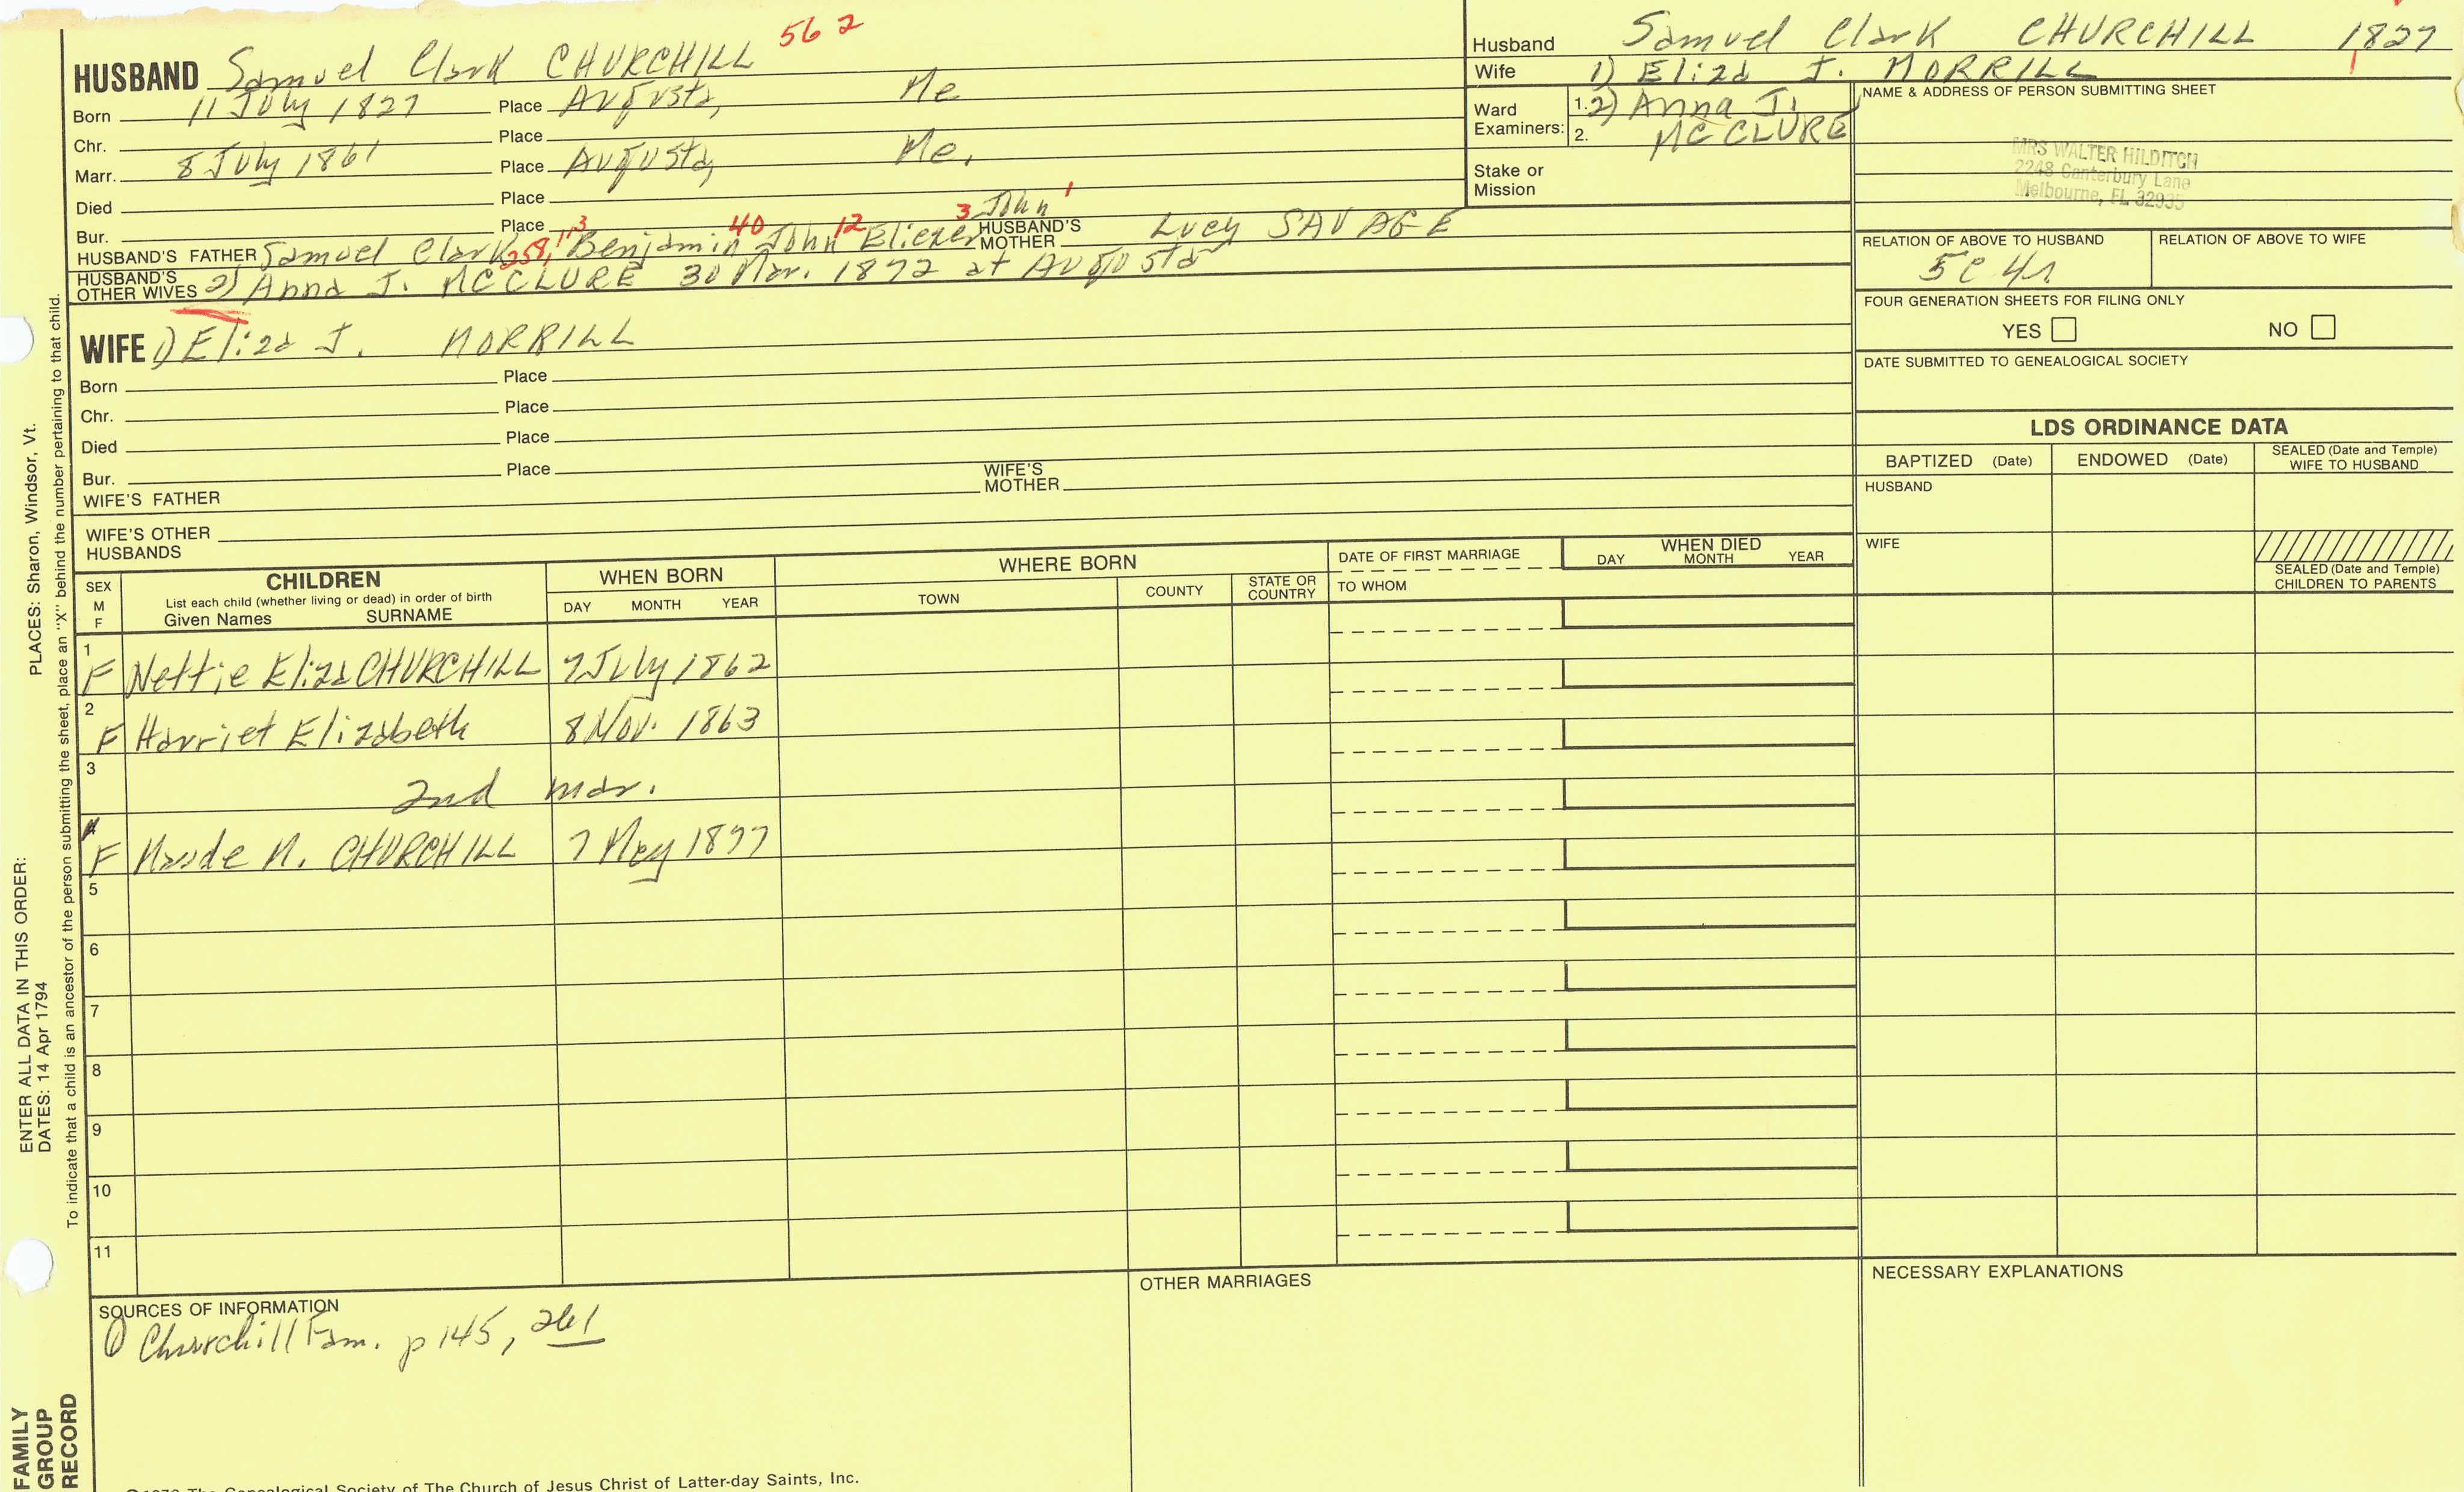 HUSBAND Samuel Clark CHURCHILL 562
Born 11 July 1827 Place Augusta, Me
Chr. Place
Marr. 8 July 1861 Place Augusta, Me.
Died Place
Bur. Place
HUSBAND'S FATHER Samuel Clark 258, 113 Benjamin 40 John 12 Eliezer 3 John 1 HUSBAND'S MOTHER Lucy SAVAGE
HUSBAND'S OTHER WIVES 2) Anna J. MCCLURE 30 Mar. 1872 at Augusta
Husband Samuel Clark CHURCHILL 1827
Wife 1) Eliza J. MORRILL
Ward Examiners: 1. 2) Anna J.
2. MCCLURE
Stake or Mission
NAME & ADDRESS OF PERSON SUBMITTING SHEET
MRS WALTER HILDITCH
2248 Canterbury Lane
Melbourne, FL 32935
RELATION OF ABOVE TO HUSBAND RELATION OF ABOVE TO WIFE
5C 4r
FOUR GENERATION SHEETS FOR FILING ONLY
YES NO
DATE SUBMITTED TO GENEALOGICAL SOCIETY
WIFE 1) Eliza J. MORRILL
Born Place
Chr. Place
Died Place
Bur. Place
WIFE'S FATHER WIFE'S MOTHER
WIFE'S OTHER HUSBANDS
LDS ORDINANCE DATA
BAPTIZED (Date) ENDOWED (Date) SEALED (Date and Temple) WIFE TO HUSBAND
HUSBAND
WIFE
SEALED (Date and Temple) CHILDREN TO PARENTS
SEX M F CHILDREN WHEN BORN WHERE BORN DATE OF FIRST MARRIAGE WHEN DIED
List each child (whether living or dead) in order of birth
Given Names SURNAME DAY MONTH YEAR TOWN COUNTY STATE OR COUNTRY TO WHOM DAY MONTH YEAR
1 F Nettie Eliza CHURCHILL 7 July 1862
2 F Harriet Elizabeth 8 Nov. 1863
3 2nd mar.
4 F Maude M. CHURCHILL 7 May 1877
5
6
7
8
9
10
11
SOURCES OF INFORMATION
① Churchill Fam. p 145, 261
OTHER MARRIAGES
NECESSARY EXPLANATIONS
The Genealogical Society of The Church of Jesus Christ of Latter-day Saints, Inc.
PLACES: Sharon, Windsor, Vt.
ENTER ALL DATA IN THIS ORDER:
DATES: 14 Apr 1794
To indicate that a child is an ancestor of the person submitting the sheet, place an "X" behind the number pertaining to that child.
FAMILY
GROUP
RECORD